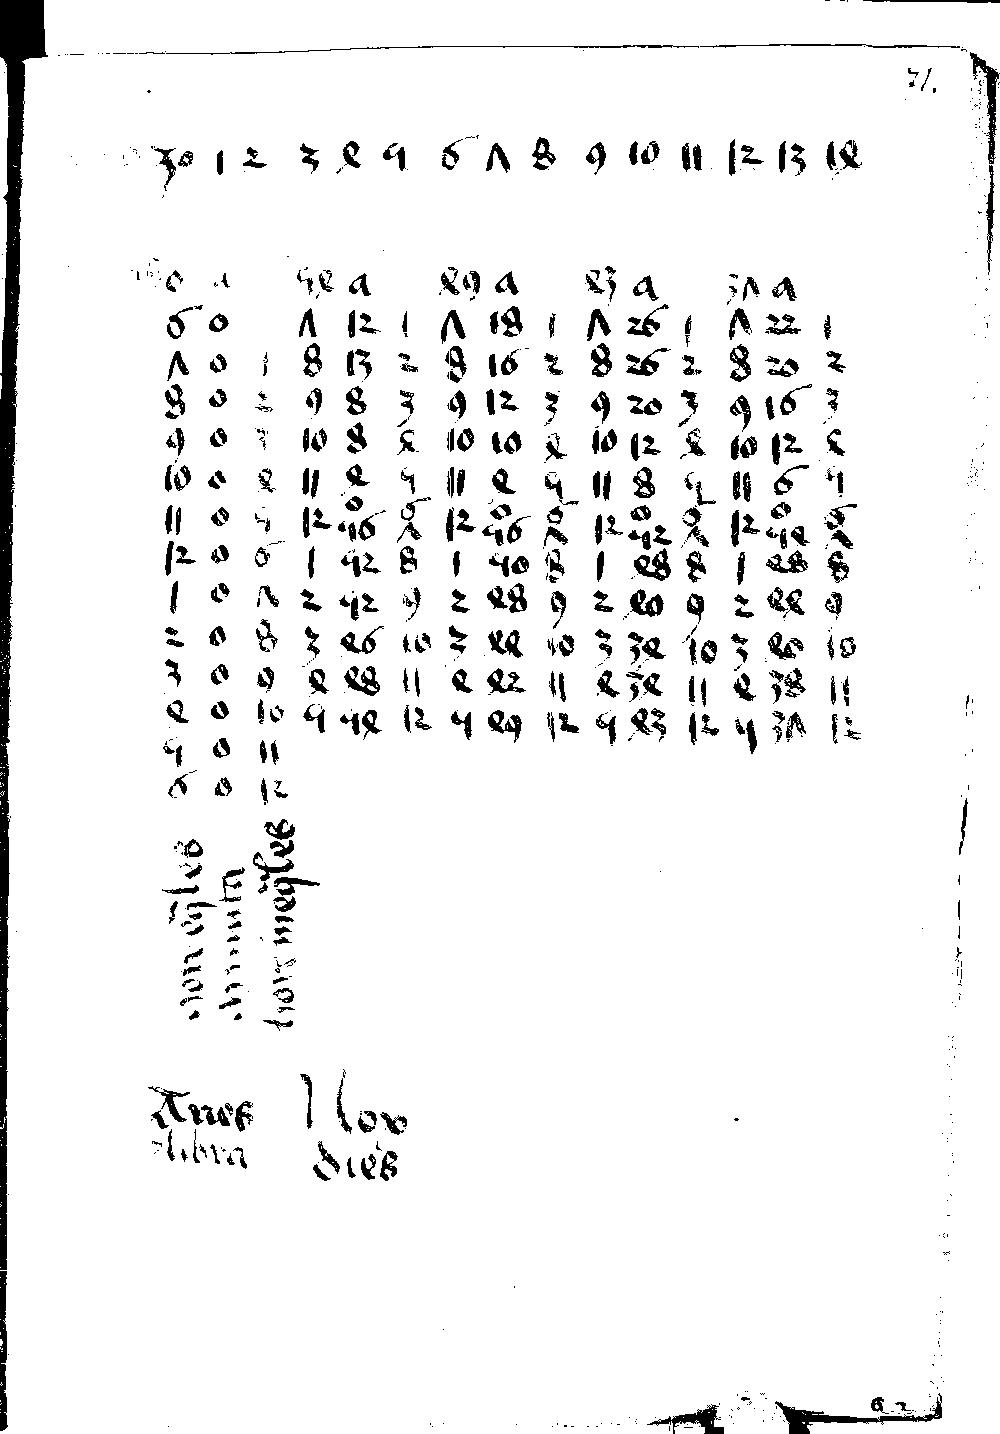 71.
30 1 2 3 4 5 6 7 8 9 10 11 12 13 14
0 a 54 a 49 a 43 a 37 a
6 0 7 12 1 7 18 1 7 26 1 7 22 1
7 0 1 8 13 2 8 16 2 8 26 2 8 20 2
8 0 2 9 8 3 9 12 3 9 20 3 9 16 3
9 0 3 10 8 4 10 10 4 10 12 4 10 12 4
10 0 4 11 4 5 11 4 5 11 8 5 11 6 5
0 6 0 6 0 6 0 6
11 0 5 12 56 7 12 56 7 12 52 7 12 54 7
12 0 6 1 52 8 1 50 8 1 48 8 1 48 8
1 0 7 2 52 9 2 48 9 2 40 9 2 44 9
2 0 8 3 46 10 3 44 10 3 34 10 3 40 10
3 0 9 4 48 11 4 42 11 4 34 11 4 38 11
4 0 10 5 54 12 5 49 12 5 43 12 5 37 12
5 0 11
6 0 12
hor eqles
minuta
hore ineqles
Aries 1 hor
libra dies